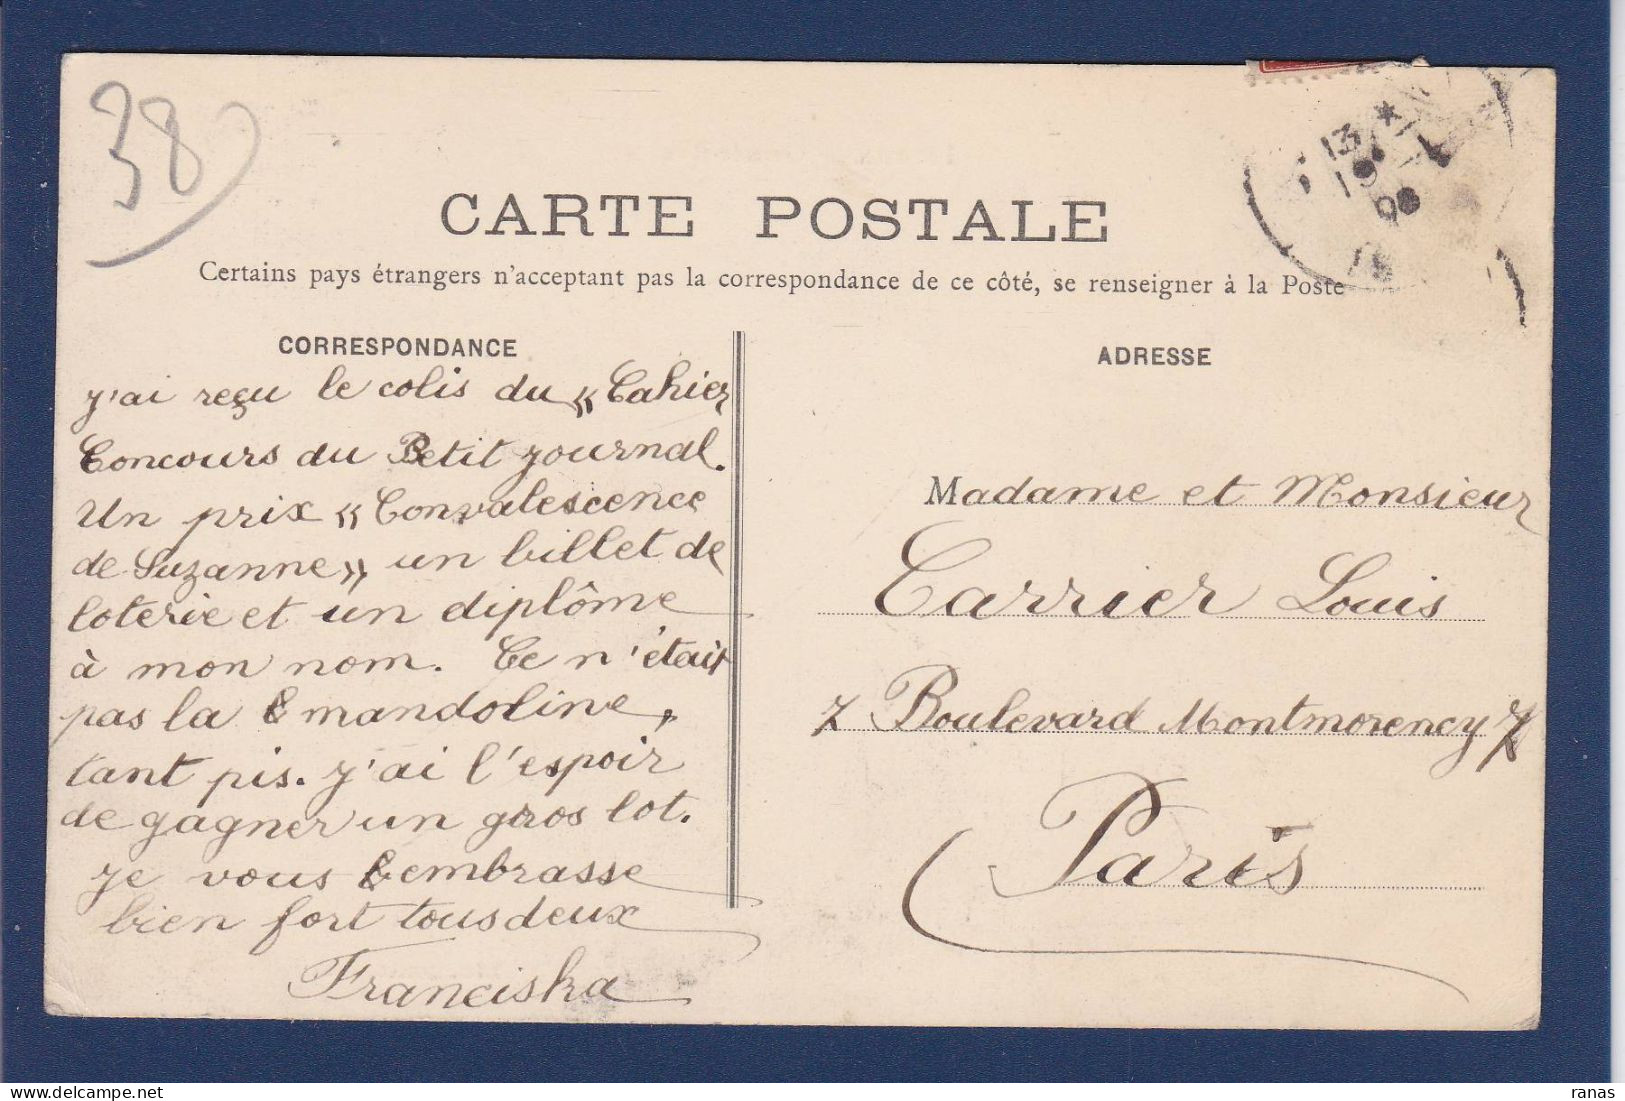 38
CARTE POSTALE
Certains pays étrangers n'acceptant pas la correspondance de ce côté, se renseigner à la Poste
CORRESPONDANCE
J'ai reçu le colis du « Cahier
Concours du Petit Journal.
Un prix « Convalescence
de Suzanne » un billet de
loterie et un diplôme
à mon nom. Ce n'était
pas la mandoline,
tant pis. J'ai l'espoir
de gagner un gros lot.
Je vous embrasse
bien fort tous deux
Franciska
ADRESSE
Madame et Monsieur
Carrier Louis
7 Boulevard Montmorency 7
Paris
13 *
ranas